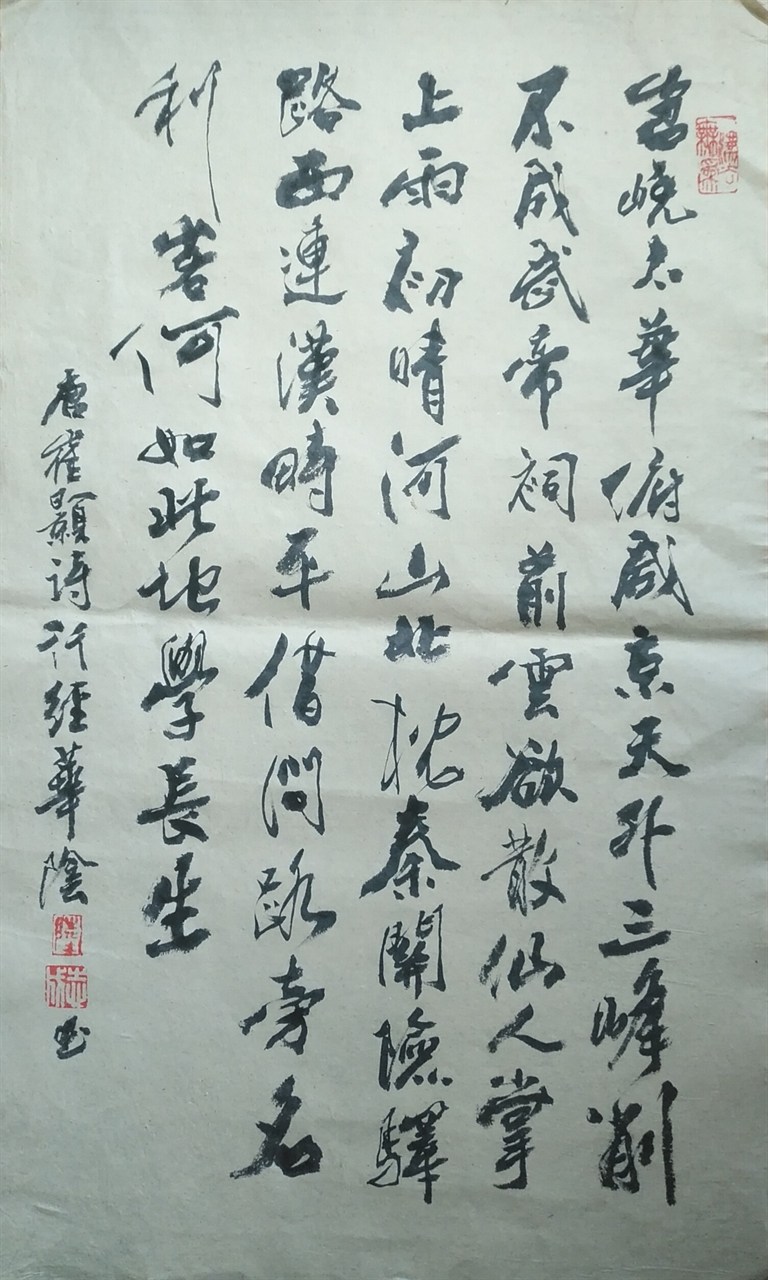 岧嶢太華俯咸京天外三峰削
不成武帝祠前雲欲散仙人掌
上雨初晴河山北枕秦關險驛
路西連漢畤平借問路旁名
利客何如此地學長生
唐崔顥詩行經華陰